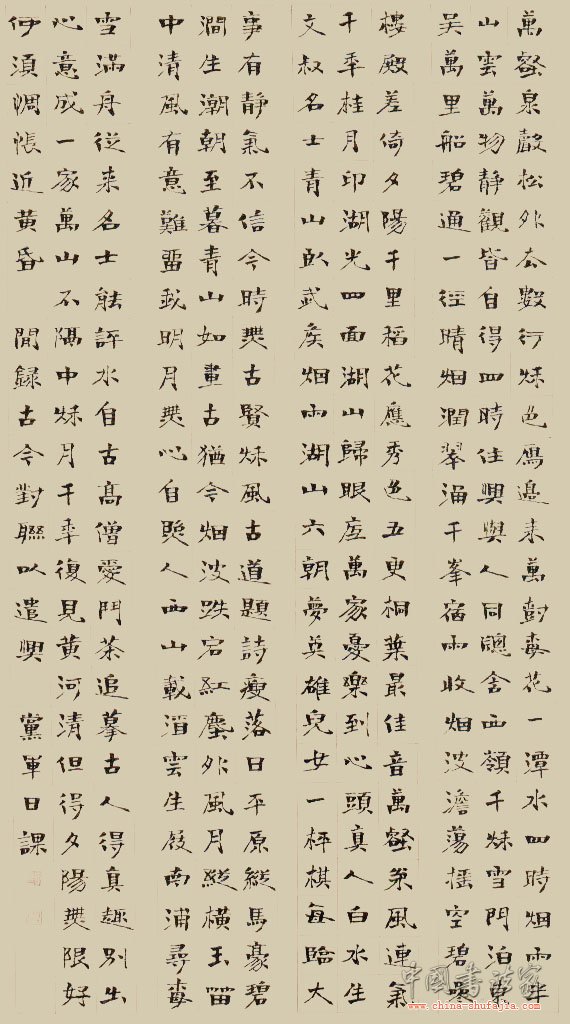 萬壑泉聲松外去數行秋色鴈邊来萬樹梅花一潭水四時烟雨半
山雲萬物靜觀皆自得四時佳興與人同窗含西嶺千秋雪門泊東
吴萬里船碧通一徑晴烟潤翠涌千峯宿雨收烟波澹蕩摇空碧
樓殿差倚夕陽千里稻花應秀色五更桐葉最佳音萬壑松風連氣
千年桂月印湖光四面湖山歸眼底萬家憂樂到心頭真人白水生
文叔名士青山臥武侯烟雨湖山六朝夢英雄兒女一枰棋每臨大
事有靜氣不信今時無古賢秋風古道題詩瘦落日平原縱馬豪碧
澗生潮朝至暮青山如畫古猶今烟波跌宕紅塵外風月縱橫玉留
中清風有意難留我明月無心自照人西山載酒雲生屐南浦尋梅
雪滿舟從来名士能評水自古高僧愛鬥茶追摹古人得真趣別出
心意成一家萬山不隔中秋月千年復見黃河清但得夕陽無限好
何須惆悵近黃昏 閒録古今對聯以遣興 黨軍日課
中國書法家
www.china-shufajia.com